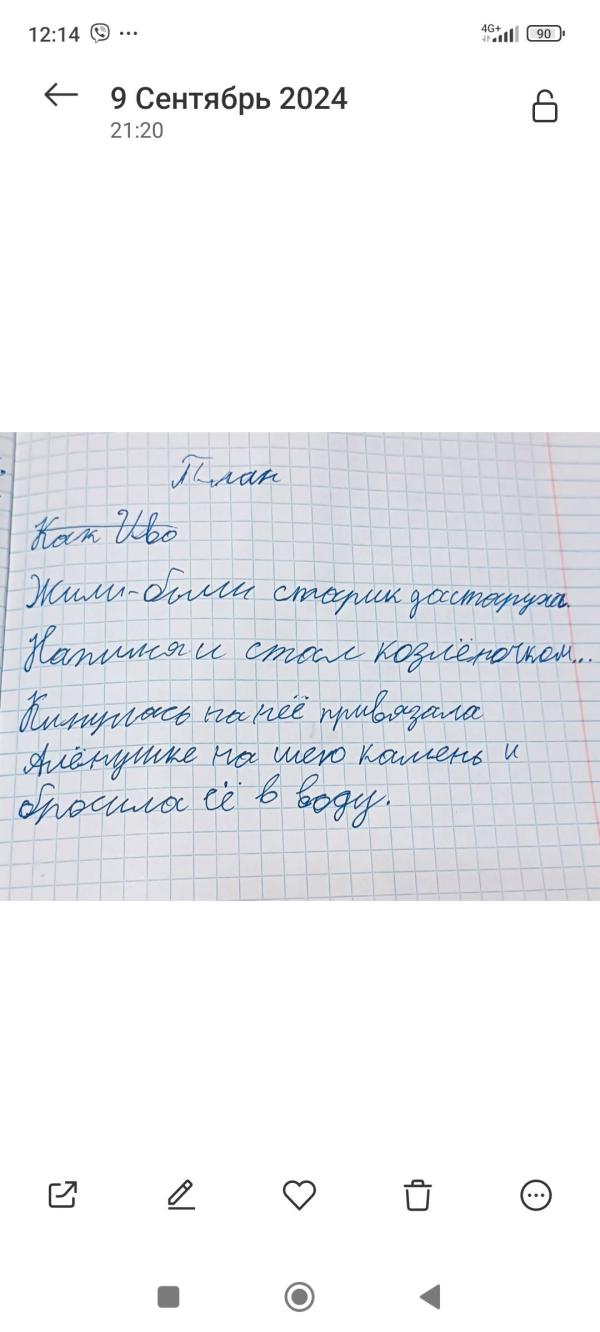 12:14 ... 4G+ 90
9 Сентябрь 2024
21:20
План
Как Иво
Жили-были старик да старуха.
Напился и стал козлёночком...
Кинулась на неё привязала
Алёнушке на шею камень и
бросила её в воду.